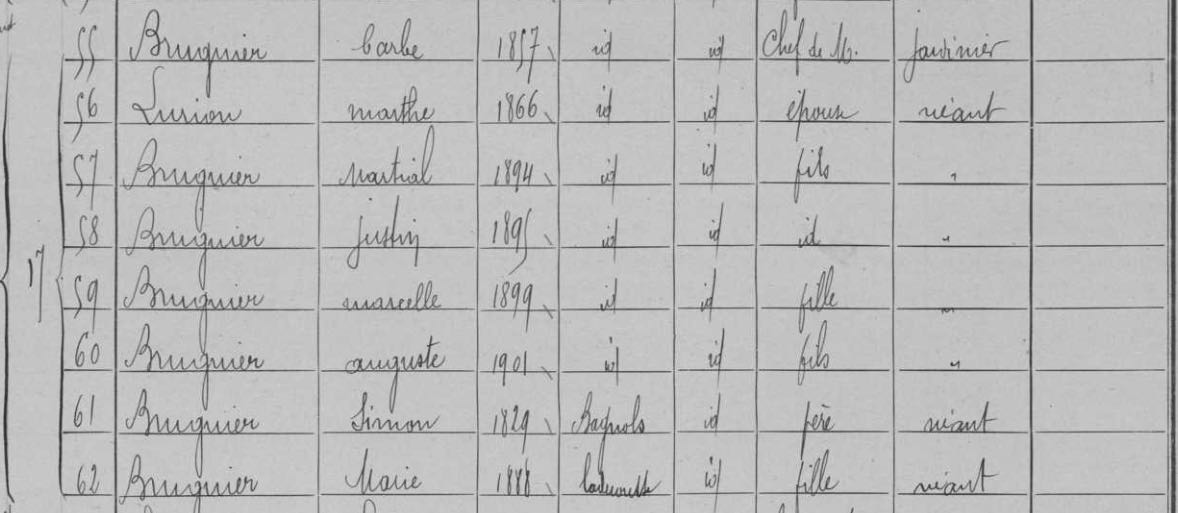 55 Bruguier barbe 1857 id id Chef de M. jardinier
56 Lurion marthe 1866 id id épouse néant
57 Bruguier Martial 1894 id id fils "
58 Bruguier justin 1895 id id id "
17
59 Bruguier marcelle 1899 id id fille "
60 Bruguier auguste 1901 id id fils "
61 Bruguier Simon 1829 Bagnols id père néant
62 Bruguier Marie 1888 id fille néant